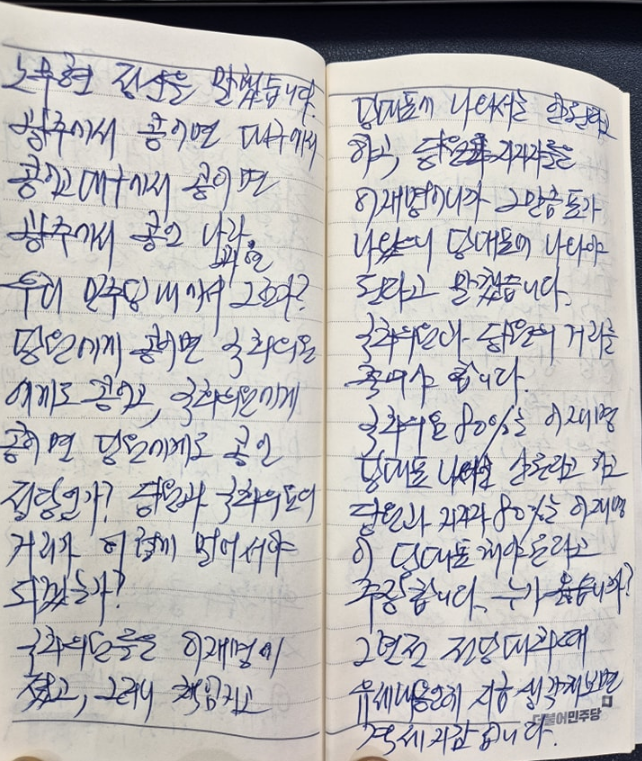 노무현 정신을 말했습니다.
광주에서 콩이면 대구에서
콩이고 대구에서 콩이면
광주에서 콩인 나라
과연
우리 민주당 내에서 그런가?
당원에게 콩이면 국회의원
에게도 콩이고, 국회의원에게
콩이면 당원에게도 콩인
정당인가? 당원과 국회의원의
거리가 이렇게 멀어서야
되겠는가?
국회의원들은 이재명이
졌고, 그러니 책임지고
당대표에 나와서는 안된다고
하고, 당원과 지지자들은
이재명이니까 그만큼 표가
나왔으니 당대표에 나와야
된다고 말했습니다.
국회의원과 당원의 거리를
좁혀야 합니다.
국회의원 80%는 이재명
당대표 나오면 안된다고 하고
당원과 지지자 80%는 이재명
이 당대표 해야 된다고
주장합니다. 누가 옳습니까?
2년전 전당대회때
유세내용인데 지금 생각해보면
격세지감입니다.
더불어민주당